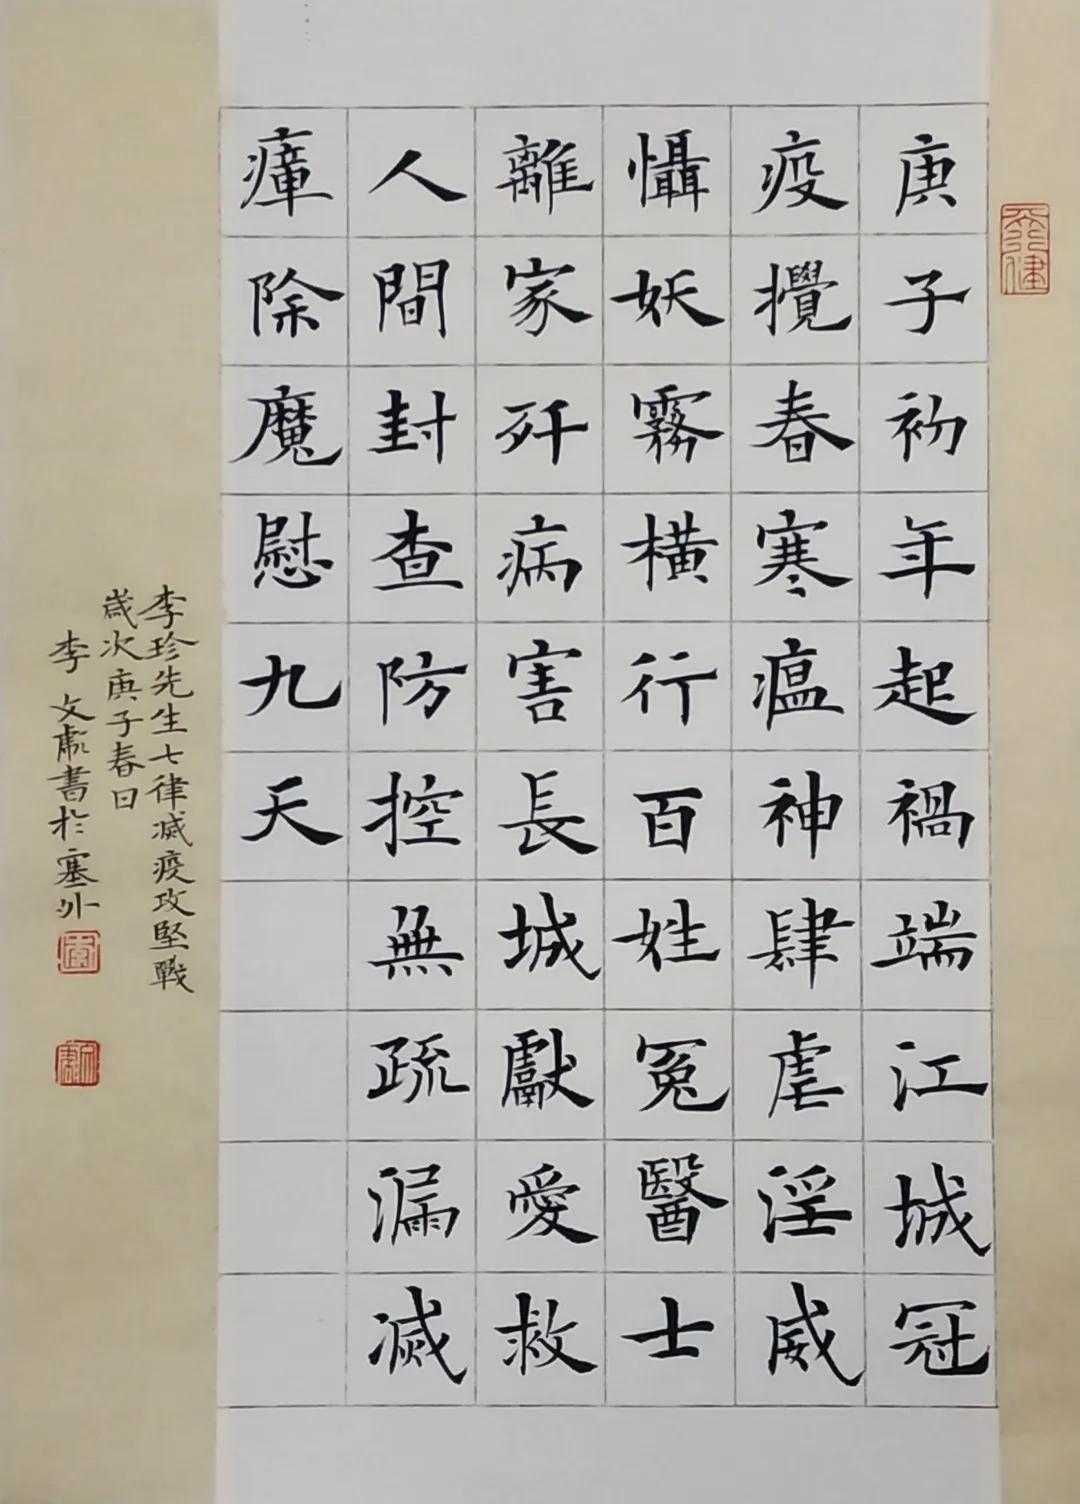 庚子初年起禍端江城冠
疫攪春寒瘟神肆虐淫威
懾妖霧橫行百姓冤醫士
離家歼病害長城獻愛救
人間封查防控無疏漏滅
瘴除魔慰九天
李珍先生七律滅疫攻堅戰
歲次庚子春日
李文彪書於塞外